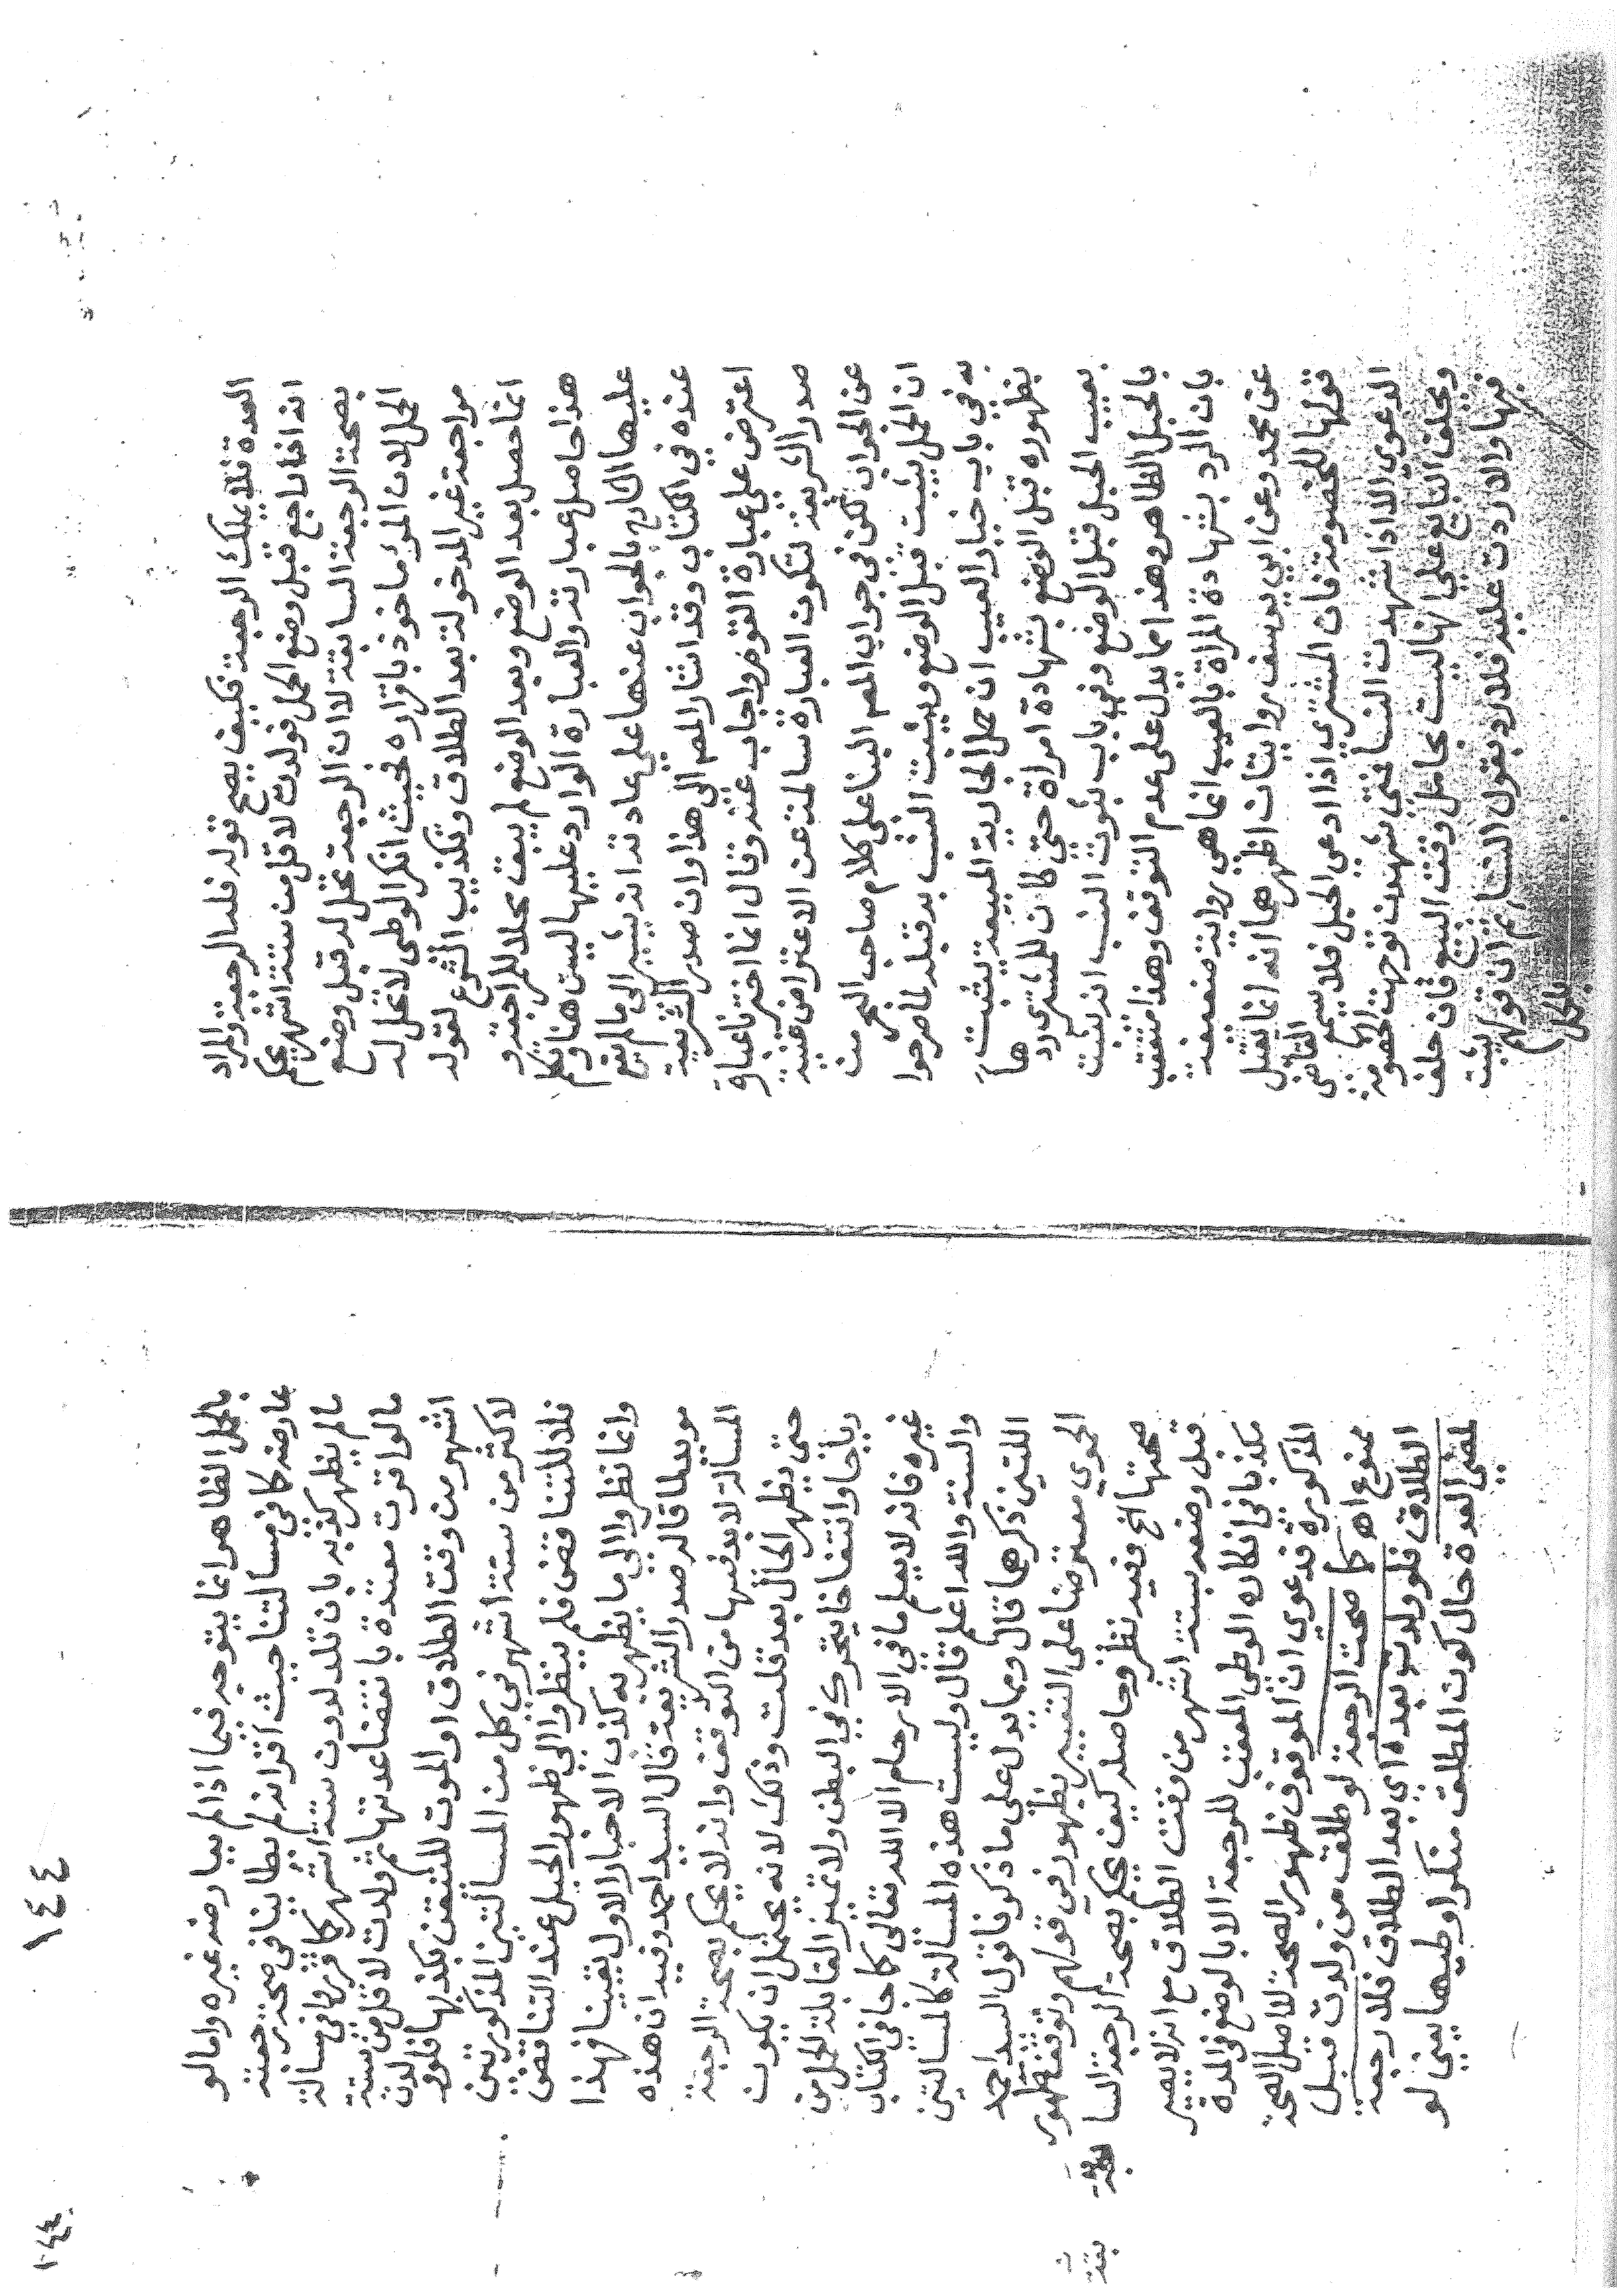 العدة فلا يملك الرجعة فكيف يصح قوله فله الرجعة والمراد
انه اذا راجع قبل وضع الحمل فولدت لاقل من ستة اشهر يحكم
بصحة الرجعة السابقة لا ان الرجعة تحل له قبل وضع
الحمل لان المؤماخوذ باقراره فحيث انكر الوطى لا تحل له
مراجعة غير المدخولة بعد الطلاق وتكذيب الشرع لقوله
انما حصل بعد الوضع وبعد الوضع لم يبق محلا للمراجعة و
هذا حاصل عبارته والعبارة الوارد عليها ليست هنا ولم يتكلم
عليها الشارح بالجواب عنها على عادته انه يشير الى ما لم يقع
عنده في الكتاب وقد اشار المصم الى هذا وان صدر الشريعة
اعترض على عبارة القوم واجاب عنه وقال انما اخترنا عبارة
صدر الشريعة لتكون العبارة سالمة عن الاعتراض غنية
عن الجواب لكن في جواب المصم البنا على كلام صاحب البحر من
ان الحمل يثبت قبل الوضع ويثبت النسب به قبله لما صرحوا
به في باب خيار العيب ان حمل الجارية المبيعة يثبت
بظهوره قبل الوضع بشهادة امراة حتى كان للمشترى ردها
بعيب الحبل قبل الوضع وفي باب ثبوت النسب انه يثبت
بالحبل الظاهر وهذا مما يدل على عدم التوقف وهذا متعقب
بان الرد بشهادة المراة بالعيب انما هي رواية ضعيفة
عن محمد وعن ابي يوسف روايتان اظهرهما انه انما يقبل
قولها للخصومة فان المشتري اذا ادعى الحبل فلا يسمع القاضي
الدعوى الا اذا شهدت النسا فمتى شهدن توجهت الخصومة
ويحلف البايع على انها ليست بحامل وقت البيع فان حلف
فيها والا ردت عليه فلا رد بقول النسا ثم ان قولهم يثبت
بالحمل
١٤٤
بالحمل الظاهر انما يتوجه فيما اذا لم يعارضه غيره واما لو
عارضه كما في مسالتنا حيث اقر انه لم يطا ينافي صحة رجعته
ما لم يظهر كذبه بان تلد لدون ستة اشهر كما قرروا في مسالة
ما لو اقرت معتدة بانقضا عدتها ثم ولدت لاقل من ستة
اشهر من وقت الطلاق او الموت للتيقن بكذبها فلو ولدت
لاكثر من ستة اشهر في كل من المسالتين المذكورتين
فلا للتناقض فلم ينظروا الى ظهور الحبل عند التناقض
وانما نظروا الى ما يظهر به كذب الاخبار الاول يقينا فهذا
مويد لما قاله صدر الشريعة قال السيد احمد وفيه ان هذه
المسالة لا بد فيها من التوقف وانه لا يحكم بصحة الرجعة
حتى يظهر الحال بعد قلت وذلك لانه يحتمل ان يكون
رياحا وانتفاخا يتحرك في البطن ولا تميز القابلة الحمل من
غيره فانه لا يعلم ما في الارحام الا الله تعالى كما جا في الكتاب
والسنة والله اعلم قال وليست هذه المسالة كالمسالتين
اللتين ذكرهما قال ومما يدل على ما ذكرنا قول السيد احمد
الحموي معترضا على التعبير بظهور في قولهم وتوقف ظهور
صحتها الخ فيه نظر وحاصله كيف يحكم بصحة الرجعة السابقة
قبل وضعه بستة اشهر من وقت الطلاق مع انه لا يصير
مكذبا في انكاره الوطى المعقب للرجعة الا بالوضع في المدة
المذكورة فدعوى ان الموقوف ظهور الصحة لا اصل الصحة
ممنوع اهـ كما صحت الرجعة لو طلق من ولدت قبل
الطلاق فلو ولدت بعده اي بعد الطلاق فلا رجعة
لمضي العدة حال كون المطلق منكرا وطيها يعني لو